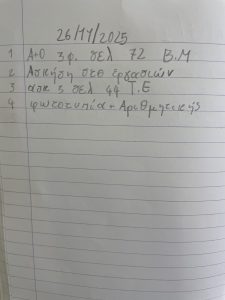 26/11/2025
1 Α+Ο 3 φ. σελ 72 Β.Μ
2 Άσκηση στο εργασιών
3 ασκ 5 σελ 44 Τ.Ε
4 φωτοτυπία Αριθμητικής